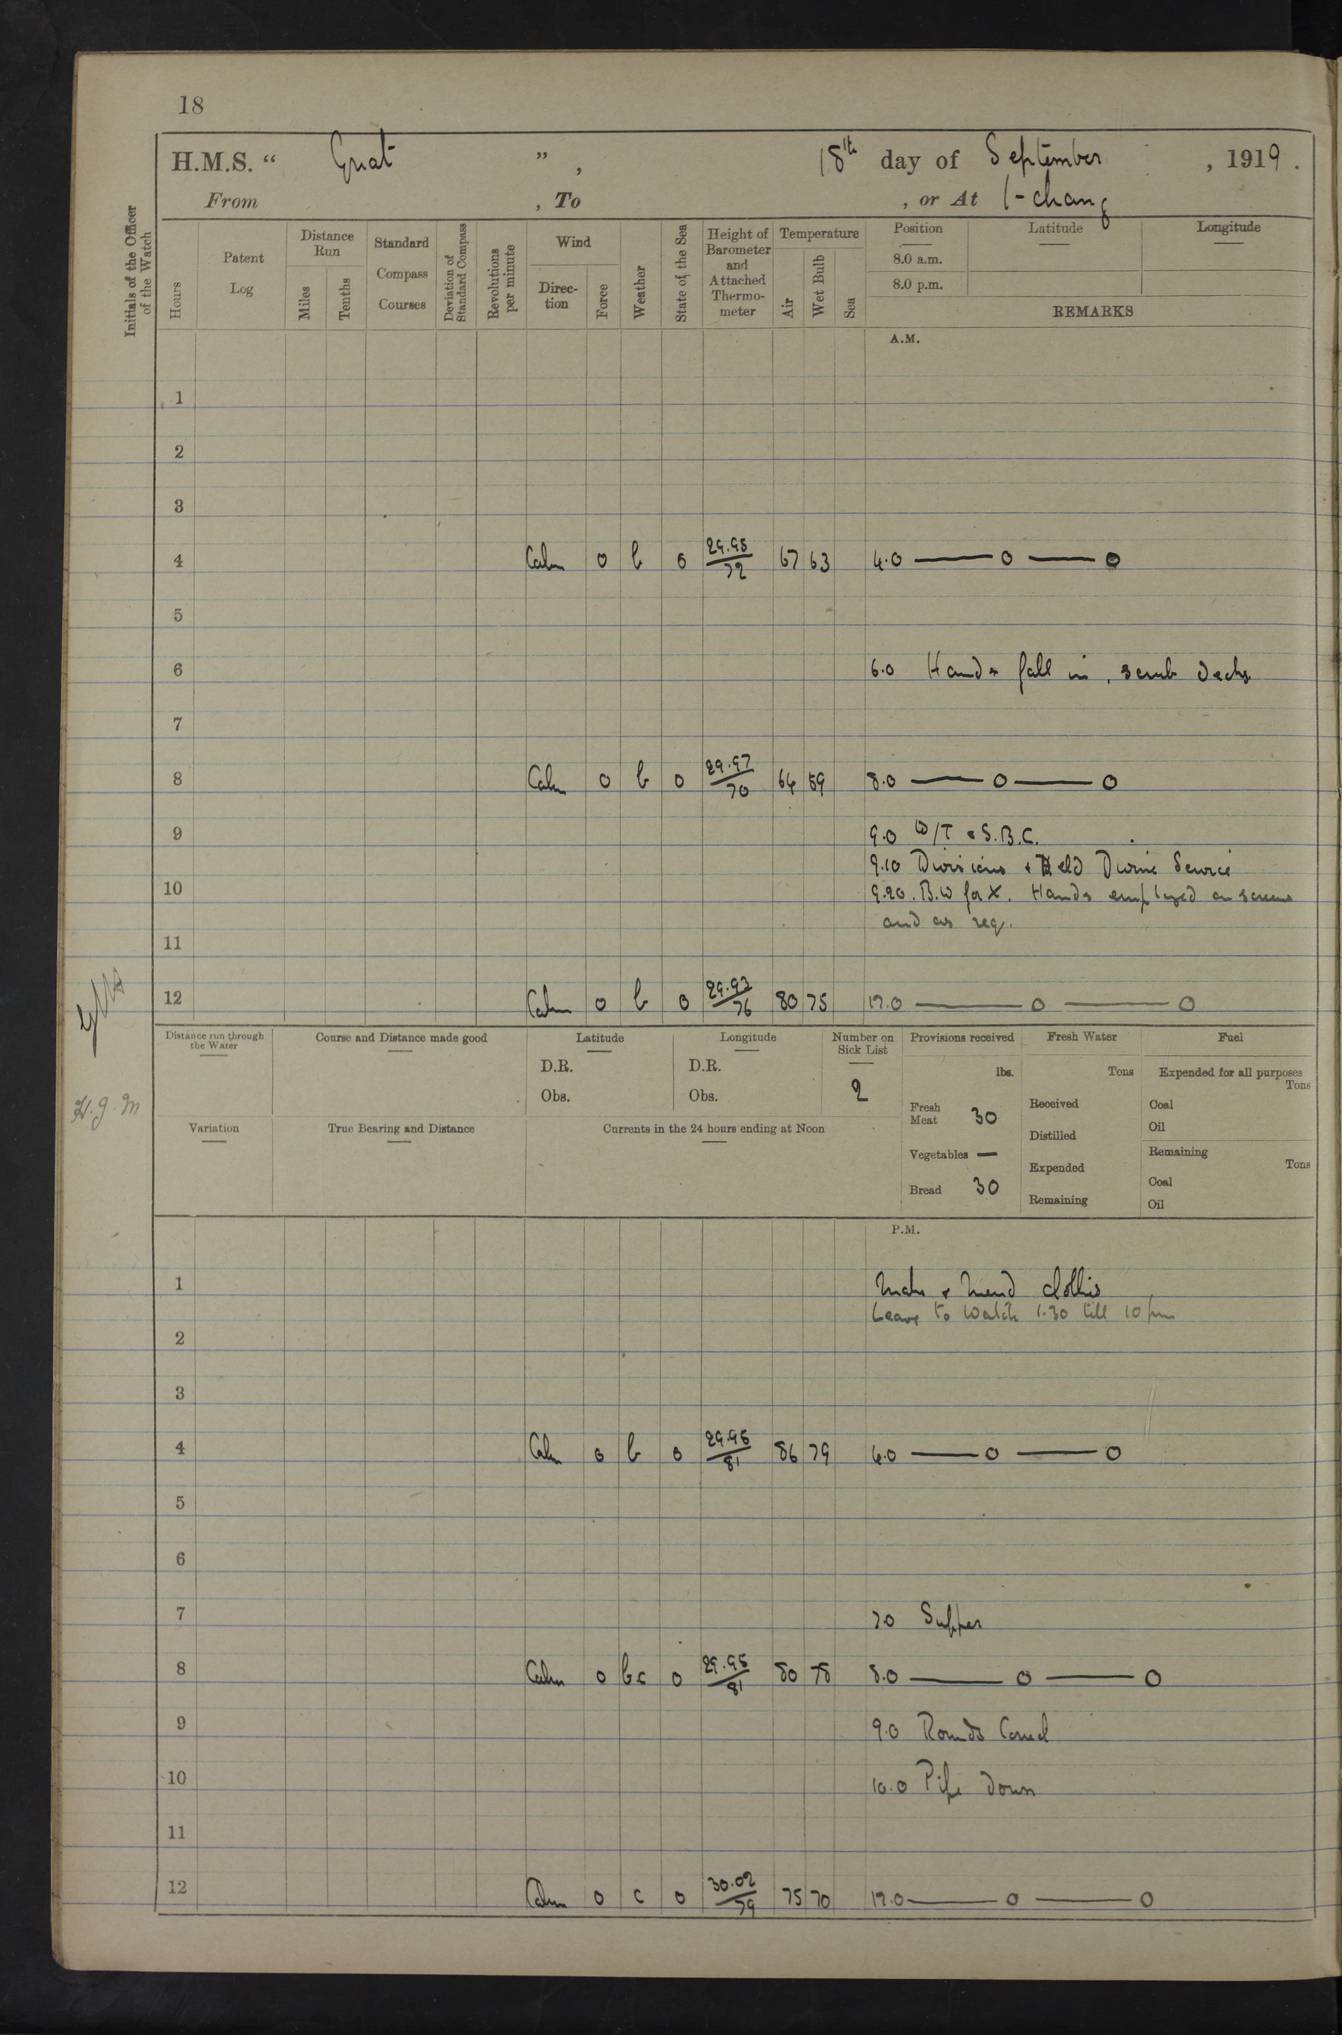 18
H.M.S. “ Gnat ” , 18th day of September , 1919 .
From , To , or At I-chang
Initials of the Officer of the Watch
Hours
Patent Log
Distance Run
Miles
Tenths
Standard Compass Courses
Deviation of Standard Compass
Revolutions per minute
Wind
Direction
Force
Weather
State of the Sea
Height of Barometer and Attached Thermometer
Temperature
Air
Wet Bulb
Sea
Position Latitude Longitude
8.0 a.m.
8.0 p.m.
REMARKS
A.M.
1
2
3
4 Calm 0 b 0 29.95/72 67 63 4.0 —— 0 —— 0
5
6 6.0 Hands fall in, scrub decks
7
8 Calm 0 b 0 29.97/70 64 59 8.0 —— 0 —— 0
9 9.0 W/T & S.B.C.
9.10 Divisions & Held Divine Service
10 9.20. B.W for X. Hands employed on screens
and as req.
11
12 Calm 0 b 0 29.93/76 80 75 12.0 —— 0 —— 0
Distance run through the Water
Course and Distance made good
Latitude
D.R.
Obs.
Longitude
D.R.
Obs.
Number on Sick List
2
Provisions received
lbs.
Fresh Meat 30
Vegetables —
Bread 30
Fresh Water
Tons
Received
Distilled
Expended
Remaining
Fuel
Expended for all purposes
Tons
Coal
Oil
Remaining
Tons
Coal
Oil
H.J.M
Variation
True Bearing and Distance
Currents in the 24 hours ending at Noon
P.M.
1 Make & Mend clothes
Leave to Watch 1.30 till 10 pm
2
3
4 Calm 0 b 0 29.95/81 86 79 4.0 —— 0 —— 0
5
6
7 7.0 Supper
8 Calm 0 bc 0 29.95/81 80 78 8.0 —— 0 —— 0
9 9.0 Rounds Correct
10 10.0 Pipe Down
11
12 Calm 0 c 0 30.02/79 75 70 12.0 —— 0 —— 0